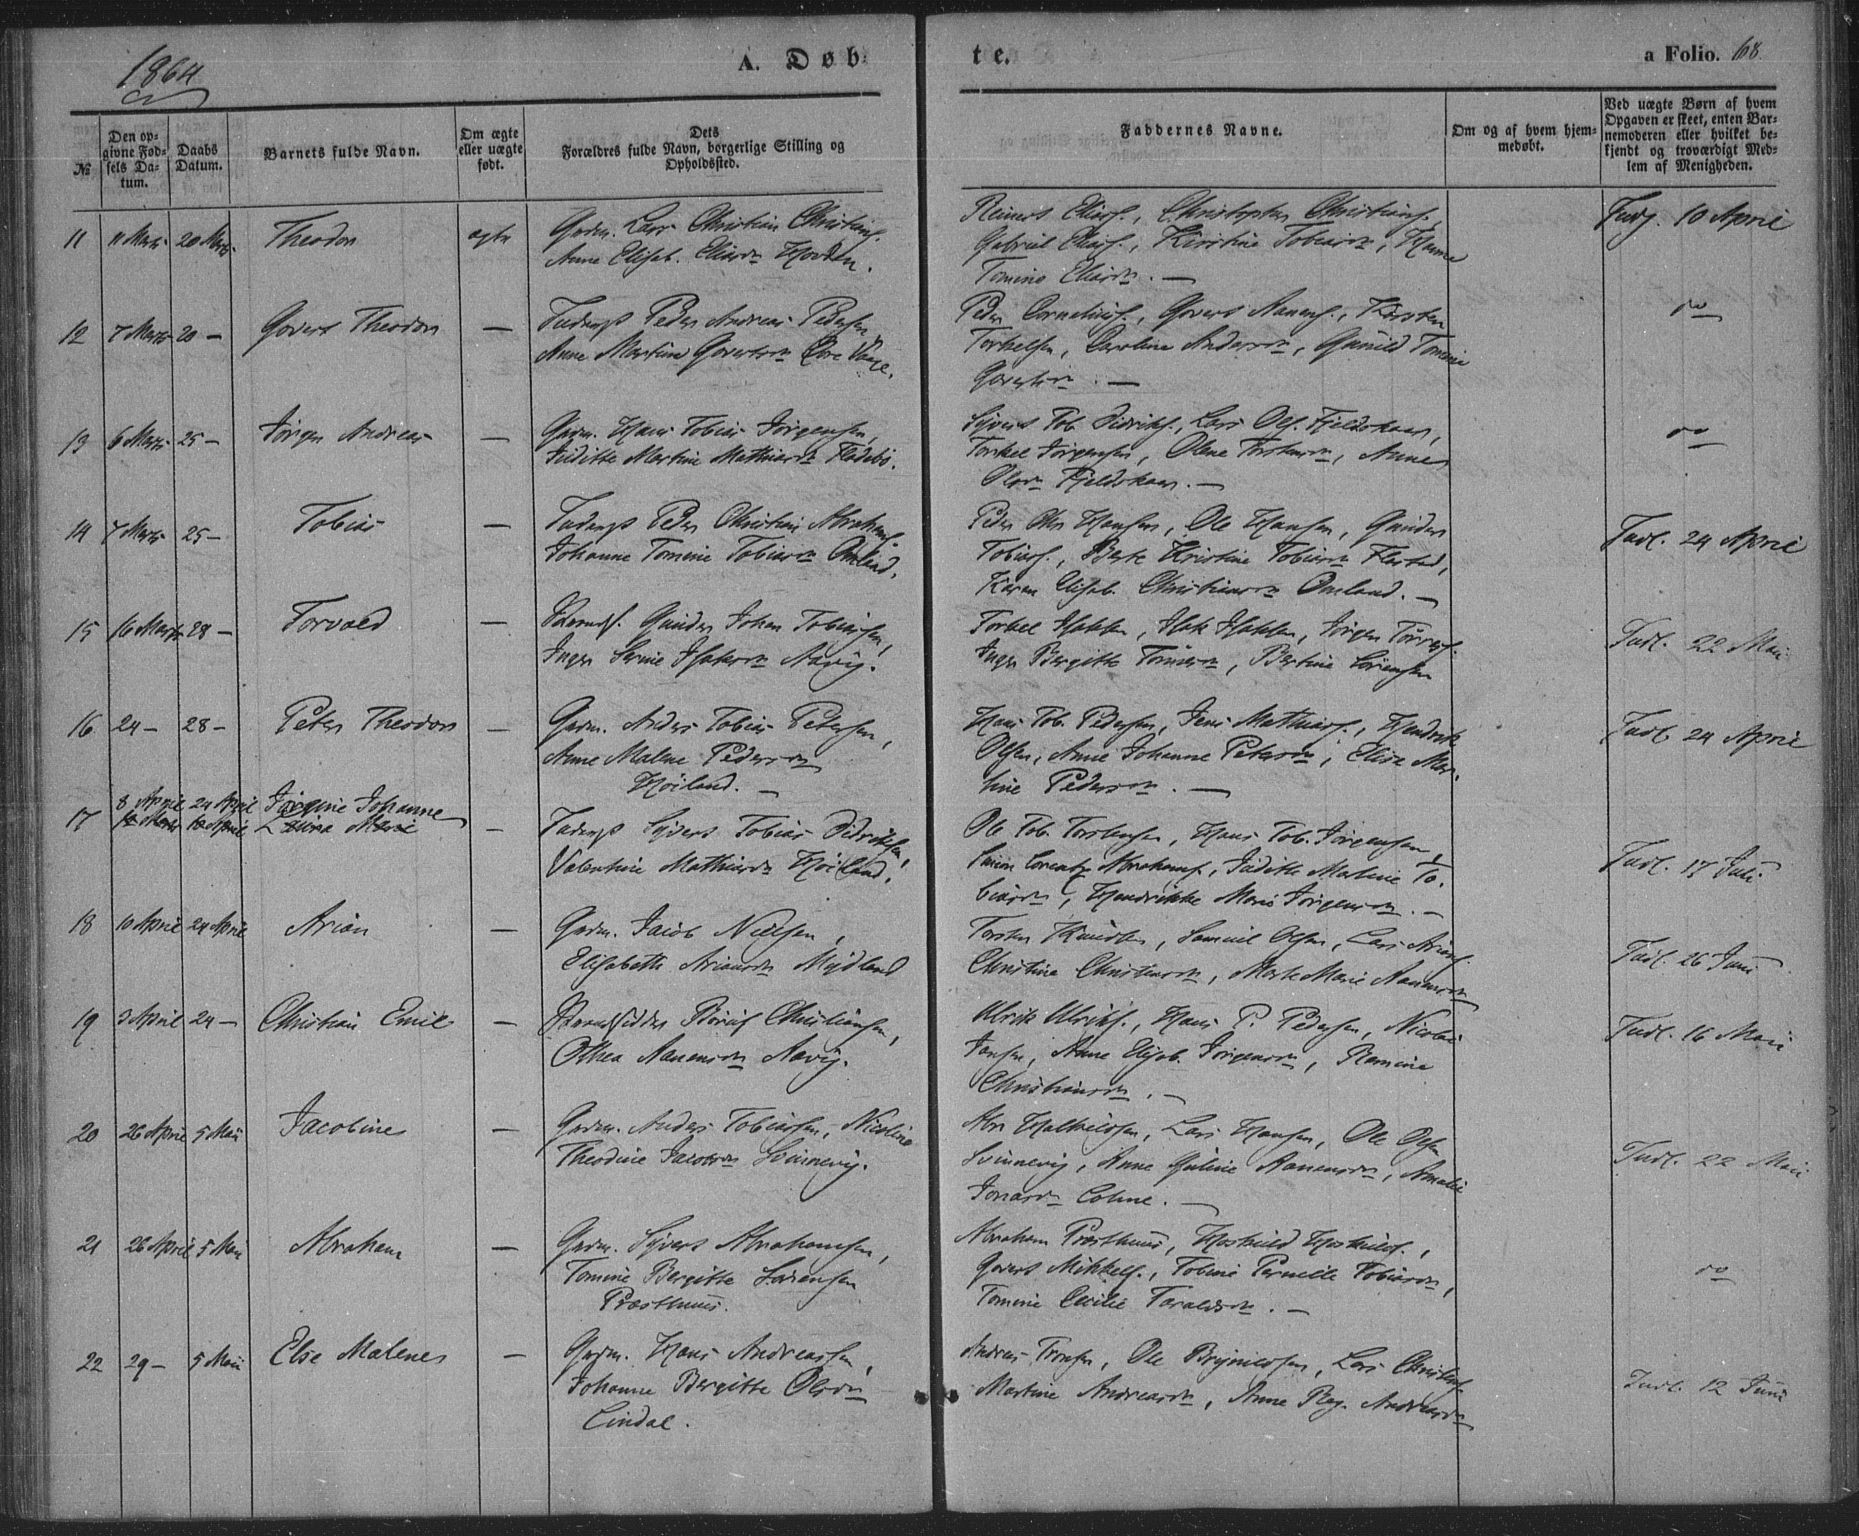 1864
A. Døb-
te.
a Folio. 68.
№
Den op-
givne Fød-
sels Da-
tum.
Daabs
Datum.
Barnets fulde Navn.
Om ægte
eller uægte
født.
Dets
Forældres fulde Navn, borgerlige Stilling og
Opholdssted.
Faddernes Navne.
Om og af hvem hjem-
medøbt.
Ved uægte Børn af hvem
Opgaven er skeet, enten Bar-
nemoderen eller hvilket be-
kjendt og troværdigt Med-
lem af Menigheden.
11 11 Marts 20 Marts Theodor ægte Grdm. Lars Christian Christians.
Anne Elisab. Eliasdr
Reinert Eliass., Christopher Christians.,
Gabriel Eliass., Kirstine Tobiasdr, Hanne
Tomine Eliasdr. —
10 April
12 7 Marts 20 — Govert Theodor — Peder Andreas Pedersen
Anne Martine Govertsdr
Peder Cornelius., Govert Aanens., Karsten
Torkelsen, Caroline Andersdr, Gunild Tomine
Govertsdr. —
do
13 6 Marts 25 — Jørgen Andreas — Grdm. Hans Tobias Jørgensen,
Juditte Martine Mathiasdr Fladebø.
Syvert Tob. Didriks., Lars Ols. Fjeldskaar,
Torkel Jørgensen, Olene Torstensdr, Anne
Olsdr Fjeldskaar. —
do
14 7 Marts 25 — Tobias — Peder Christian Abrahams.
Johanne Tomine Tobiasdr Omland.
Peder Chr. Hansen, Ole Hansen, Gunder
Tobias., Berte Kristine Tobiasdr
Karen Elisab. Christiansdr Omland. —
Indl. 24 April
15 16 Marts 28 — Torvald — Gunder Johan Tobiassen,
Inger Serine Isaksdr Aavig.
Torkel Isaksen, Isak Isaksen, Jørgen
Inger Bergitte Tønnesdr, Bertine Sørensen
Indl. 22 Mai
16 24 — 28 — Peter Theodor — Grdm. Anders Tobias Petersen,
Anne Malene Pedersdr
Høiland. —
Hans Tob. Pedersen, Jens Mathias., Hendrik
Olsen, Anne Johanne Petersdr, Elise Mar-
tine Pedersdr. —
Indl. 24 April
8 April 24 April Jørgine Johanne
17 Marie — Syvert Tobias Didriksen,
Valentine Mathiasdr Høiland.
Ole Tob. Torstensen, Hans Tob. Jørgensen,
Simon Lorentz Abrahams., Juditte Martine To-
biasdr, Hendrikke Marie Jørgensdr. —
Indl. 17 Juli
18 10 April 24 April Arian — Grdm. Jacob Nielsen,
Elisabeth Ariansdr Mydland
Torsten Knudsen, Samuel Olsen, Lars Arians.
Christine Christiansdr, Marte Marie Aanensdr
Indl. 26 Juni
19 3 April 24 — Christian Emil — Strandsidder Børuf Christiansen,
Othea Aanensdr Aavig.
Ulrik Ulriks., Hans P. Pedersen, Nicolai
Jansen, Anne Elisab. Jørgensdr, Ramine
Christiansdr. —
Indl. 16 Mai
20 26 April 5 Mai Jacobine — Grdm. Anders Tobiassen, Nicoline
Theodine Jacobsdr Svinnevig.
Abr. Halkildsen, Lars Hansen, Ole Olsen
Svinnevig, Anne Guline Aanensdr, Amalie
Jonasdr
Indl. 22 Mai
21 26 April 5 Mai Abraham — Grdm. Syvert Abrahamsen,
Tomine Bergitte Sørensen
Præsthuus.
Abraham Præsthuus, Hoskuld Hoskulds.,
Govert Mikkels., Tobine Pernille Tobiasdr,
Tomine Cecilie Taraldsdr. —
do
22 29 — 5 Mai Else Malene — Grdm. Hans Andreassen,
Johanne Bergitte Olsdr
Lindal.
Andreas Tronsen, Ole Brynildsen, Lars Christens.
Martine Andreasdr, Anne Reg. Andreasdr
Indl. 12 Juni